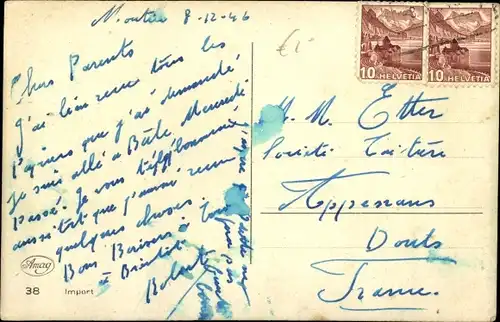 Moutier 8-12-46
Chers Parents
J'ai bien reçu tous les
papiers que j'ai demandé
Je suis allé à Bâle Mercredi
Passé. Je vous téléphonerai
aussitôt que j'aurai reçu
quelques choses.
Bons Baisers à tous
à Bientôt
J'espère
€1-
10 HELVETIA 10 HELVETIA
M. M. Etter
Société Laitière
Appenans
Doubs
France.
Amag
38 Import